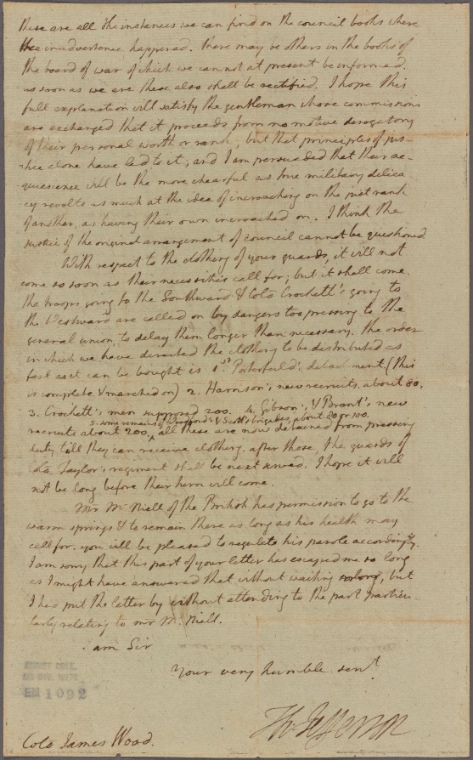 these are all the instances we can find on the council books where
this inadvertence happened. there may be others in the books of
the board of war of which we cannot at present be informed.
as soon as we are these also shall be rectified. I hope this
full explanation will satisfy the gentlemen whose commissions
are exchanged that it proceeds from no motive derogatory
of their personal worth or rank, but that principles of jus-
tice alone have led to it, and I am persuaded that their ac-
quiescence will be the more chearful as true military delica-
cy revolts as much at the idea of incroaching on the just rank
of another, as having their own incroached on. I think the
justice of the original arrangement of council cannot be questioned
With respect to the clothing of your guards, it will not
come so soon as their necessities call for; but it shall come
the troops going to the Southward & Colo Crockett's going to
the Westward are called on by dangers too pressing to the
general union, to delay them longer than necessary. the order
in which we have directed the clothing to be distributed as
fast as it can be bought is 1st Porterfield's detachment (this
is complete & marched on) 2. Harrison's new recruits, about 80.
3. Crockett's men supposed 200. 4. Gibson's, & Brent's new
5. some remains of & Scott's brigades, about 80 or 100.
recruits about 200, all these are now detained from pressing
duty till they can receive clothing. after those the guards of
Colo Taylor's regiment shall be next served. I hope it will
not be long before their turn will come.
Mr McNeill of the British has permission to go to the
warm springs & to remain there as long as his health may
call for. you will be pleased to regulate his parole accordingly.
I am sorry that this part of your letter has escaped me so long
as I might have answered that without waiting so long, but
I had put the letter by without attending to the part particu-
larly relating to mr McNeill.
I am Sir
Your very humble servt.
Th: Jefferson
EM 1092
Colo James Wood.